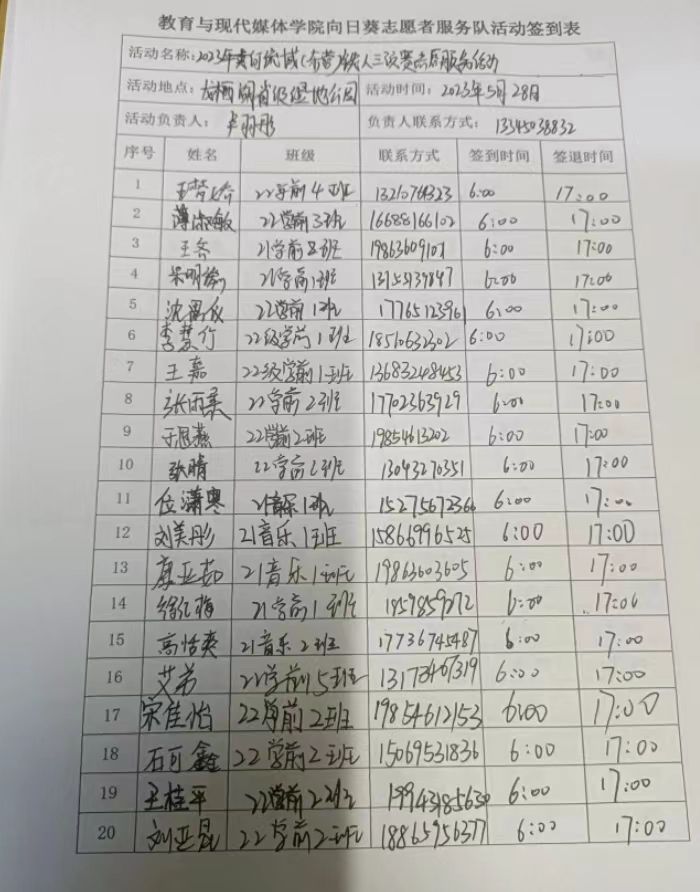 教育与现代媒体学院向日葵志愿者服务队活动签到表
活动名称:2023年黄河流域(东营)铁人三项赛志愿服务活动
活动地点: 龙栖湖省级湿地公园 活动时间: 2023年5月28日
活动负责人: 负责人联系方式: 13345038832
序号 姓名 班级 联系方式 签到时间 签退时间
1 22学前4班 6:00 17:00
2 薄淑敏 22学前3班 16688166102 6:00 17:00
3 王冬 21学前2班 6:00 17:00
4 21学前1班 6:00 17:00
5 22学前1班 6:00 17:00
6 李慧行 22级学前1班 18510632302 6:00 17:00
7 王嘉 22级学前1班 13683248453 6:00 17:00
8 张雨柔 22学前2班 17702363929 6:00 17:00
9 于思燕 22学前2班 19854613202 6:00 17:00
10 张晴 22学前2班 13043270351 6:00 17:00
11 21音乐1班 15275672366 6:00 17:00
12 刘美彤 21音乐1班 15866996525 6:00 17:00
13 康亚茹 21音乐1班 19863603605 6:00 17:00
14 徐红梅 21学前1班 6:00 17:00
15 高恬爽 21音乐2班 17736745487 6:00 17:00
16 艾弟 22学前5班 13173467319 6:00 17:00
17 宋佳怡 22学前2班 19854612153 6:00 17:00
18 石可鑫 22学前2班 15069531836 6:00 17:00
19 王桂平 22学前2班 19943185630 6:00 17:00
20 刘亚昆 22学前2班 18865956377 6:00 17:00